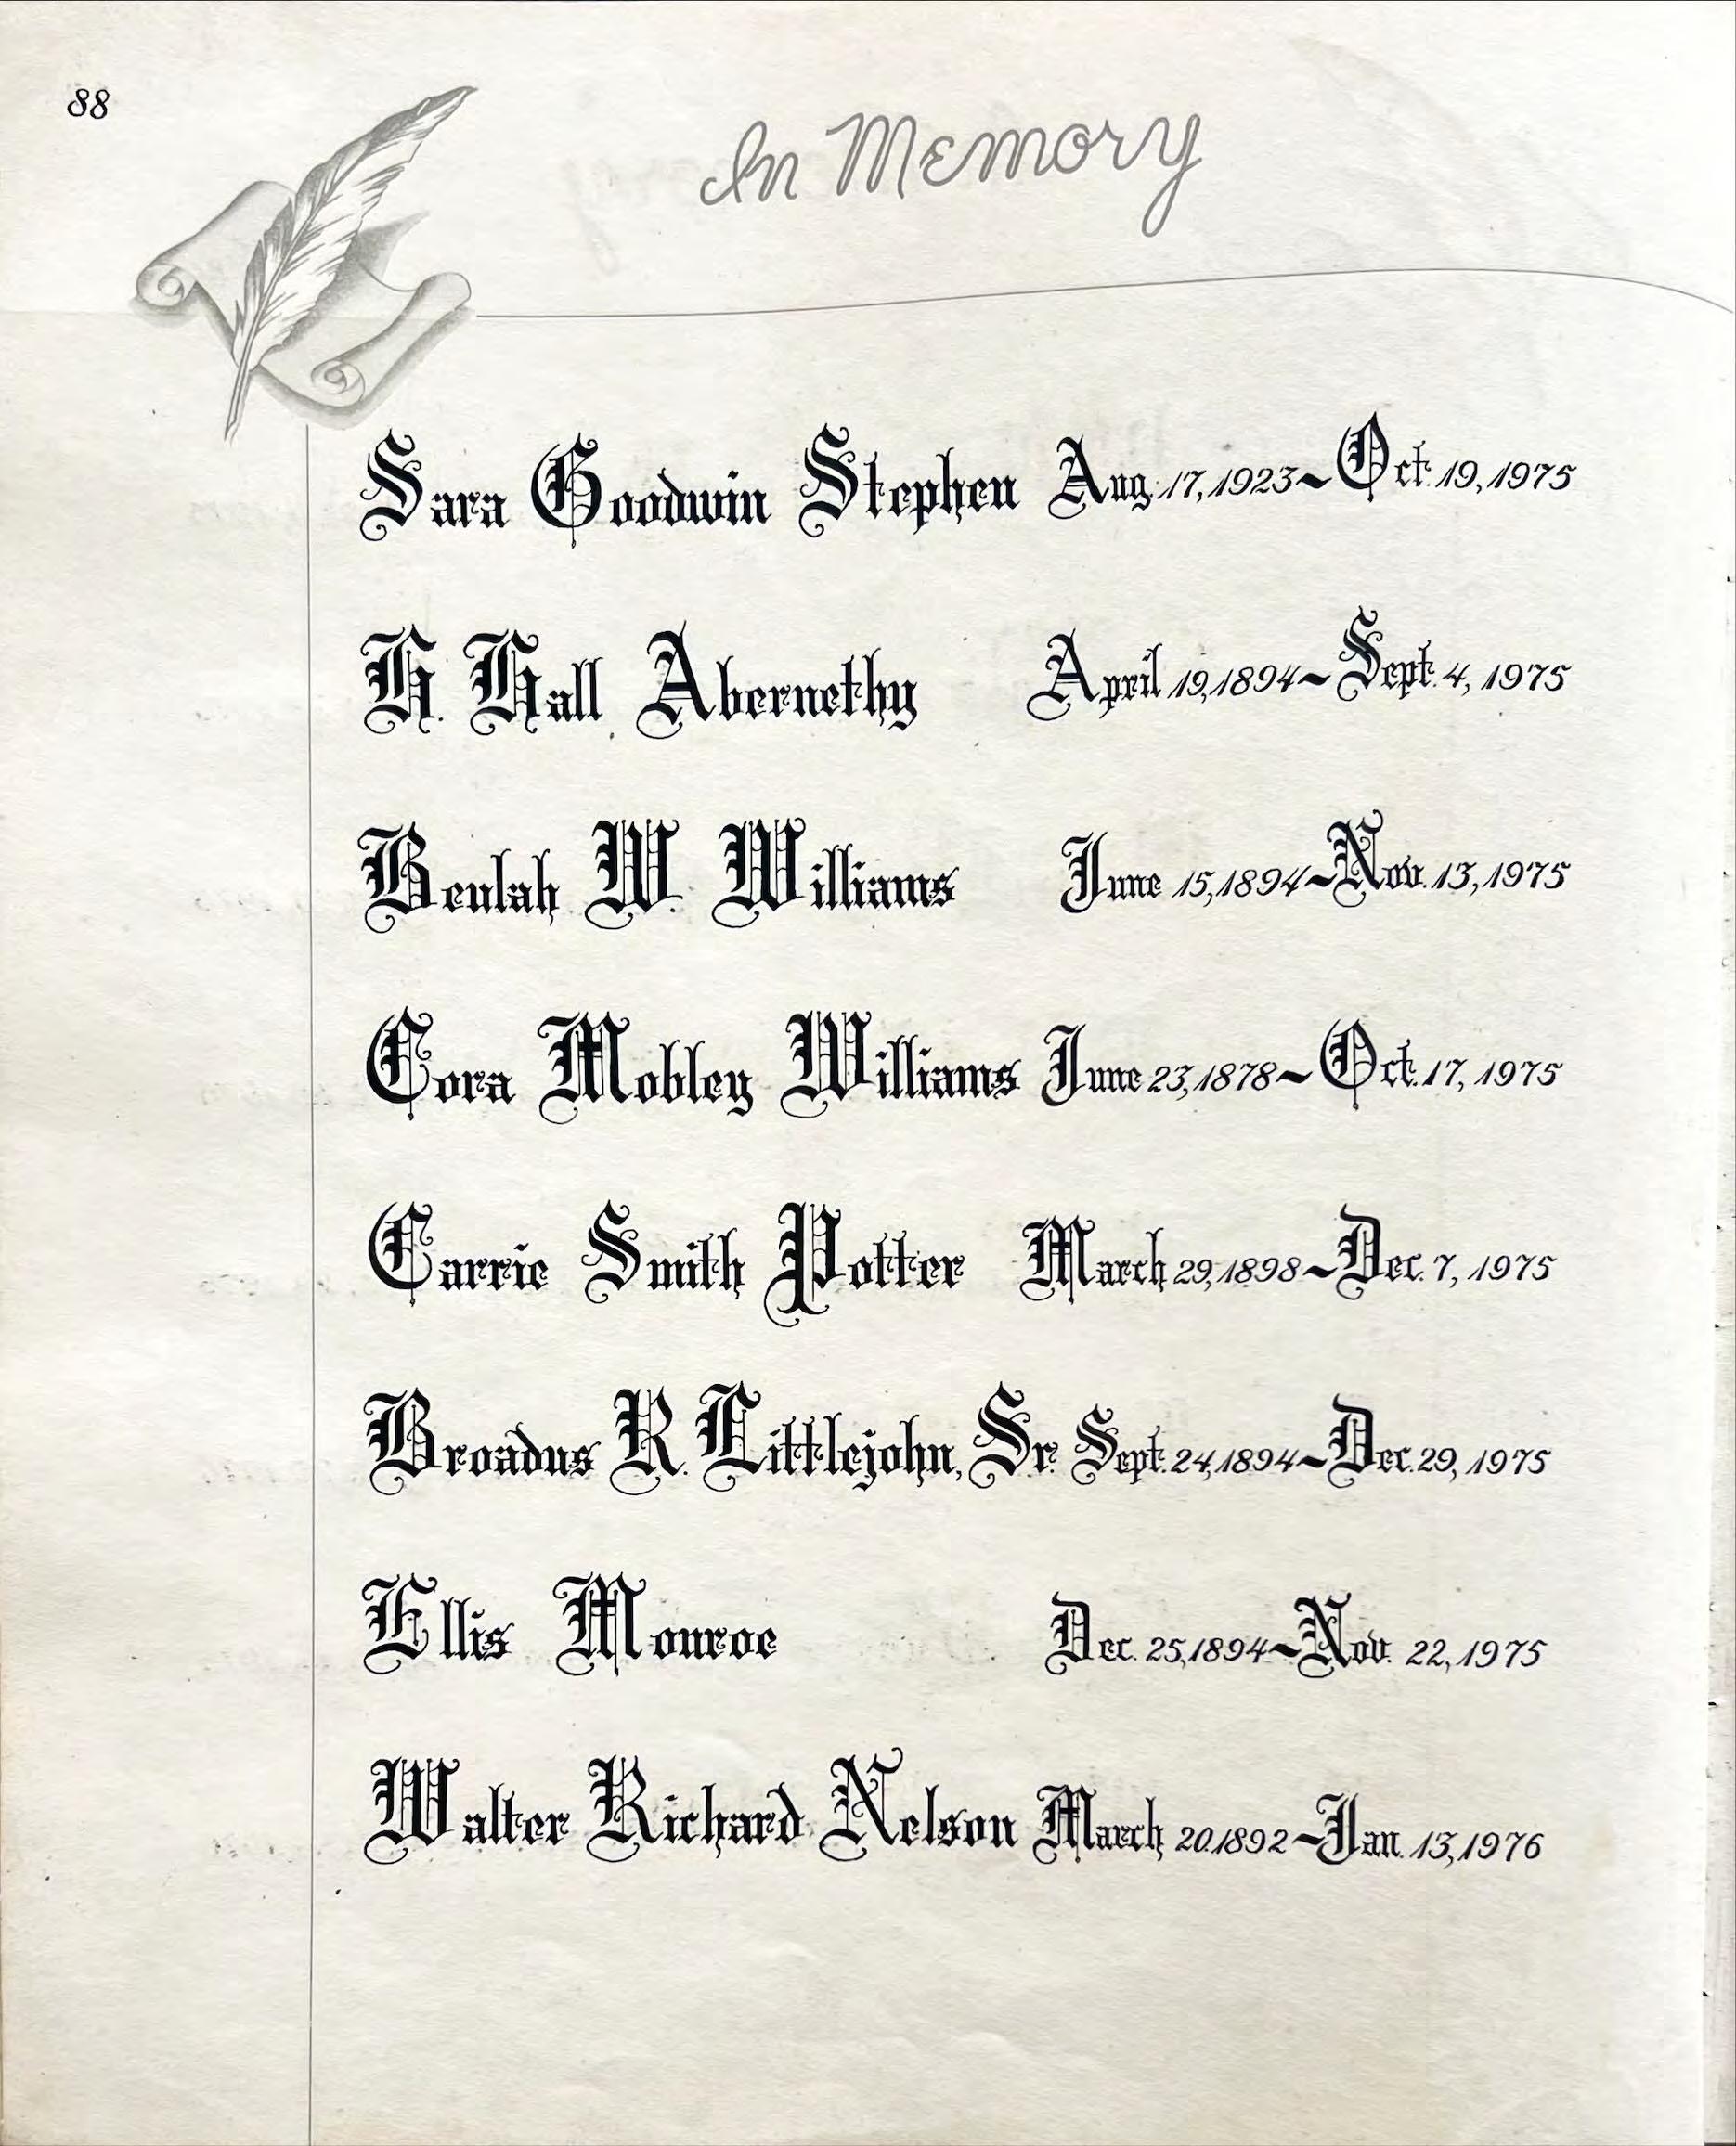 88
In Memory
Sara Goodwin Stephen Aug. 17, 1923~Oct. 19, 1975
H. Hall Abernethy April 19, 1894~Sept. 4, 1975
Beulah W. Williams June 15, 1894~Nov. 13, 1975
Cora Mobley Williams June 23, 1878~Oct. 17, 1975
Carrie Smith Potter March 29, 1898~Dec. 7, 1975
Broadus R. Littlejohn, Sr. Sept. 24, 1894~Dec. 29, 1975
Ellis Monroe Dec. 25, 1894~Nov. 22, 1975
Walter Richard Nelson March 20.1892~Jan. 13, 1976